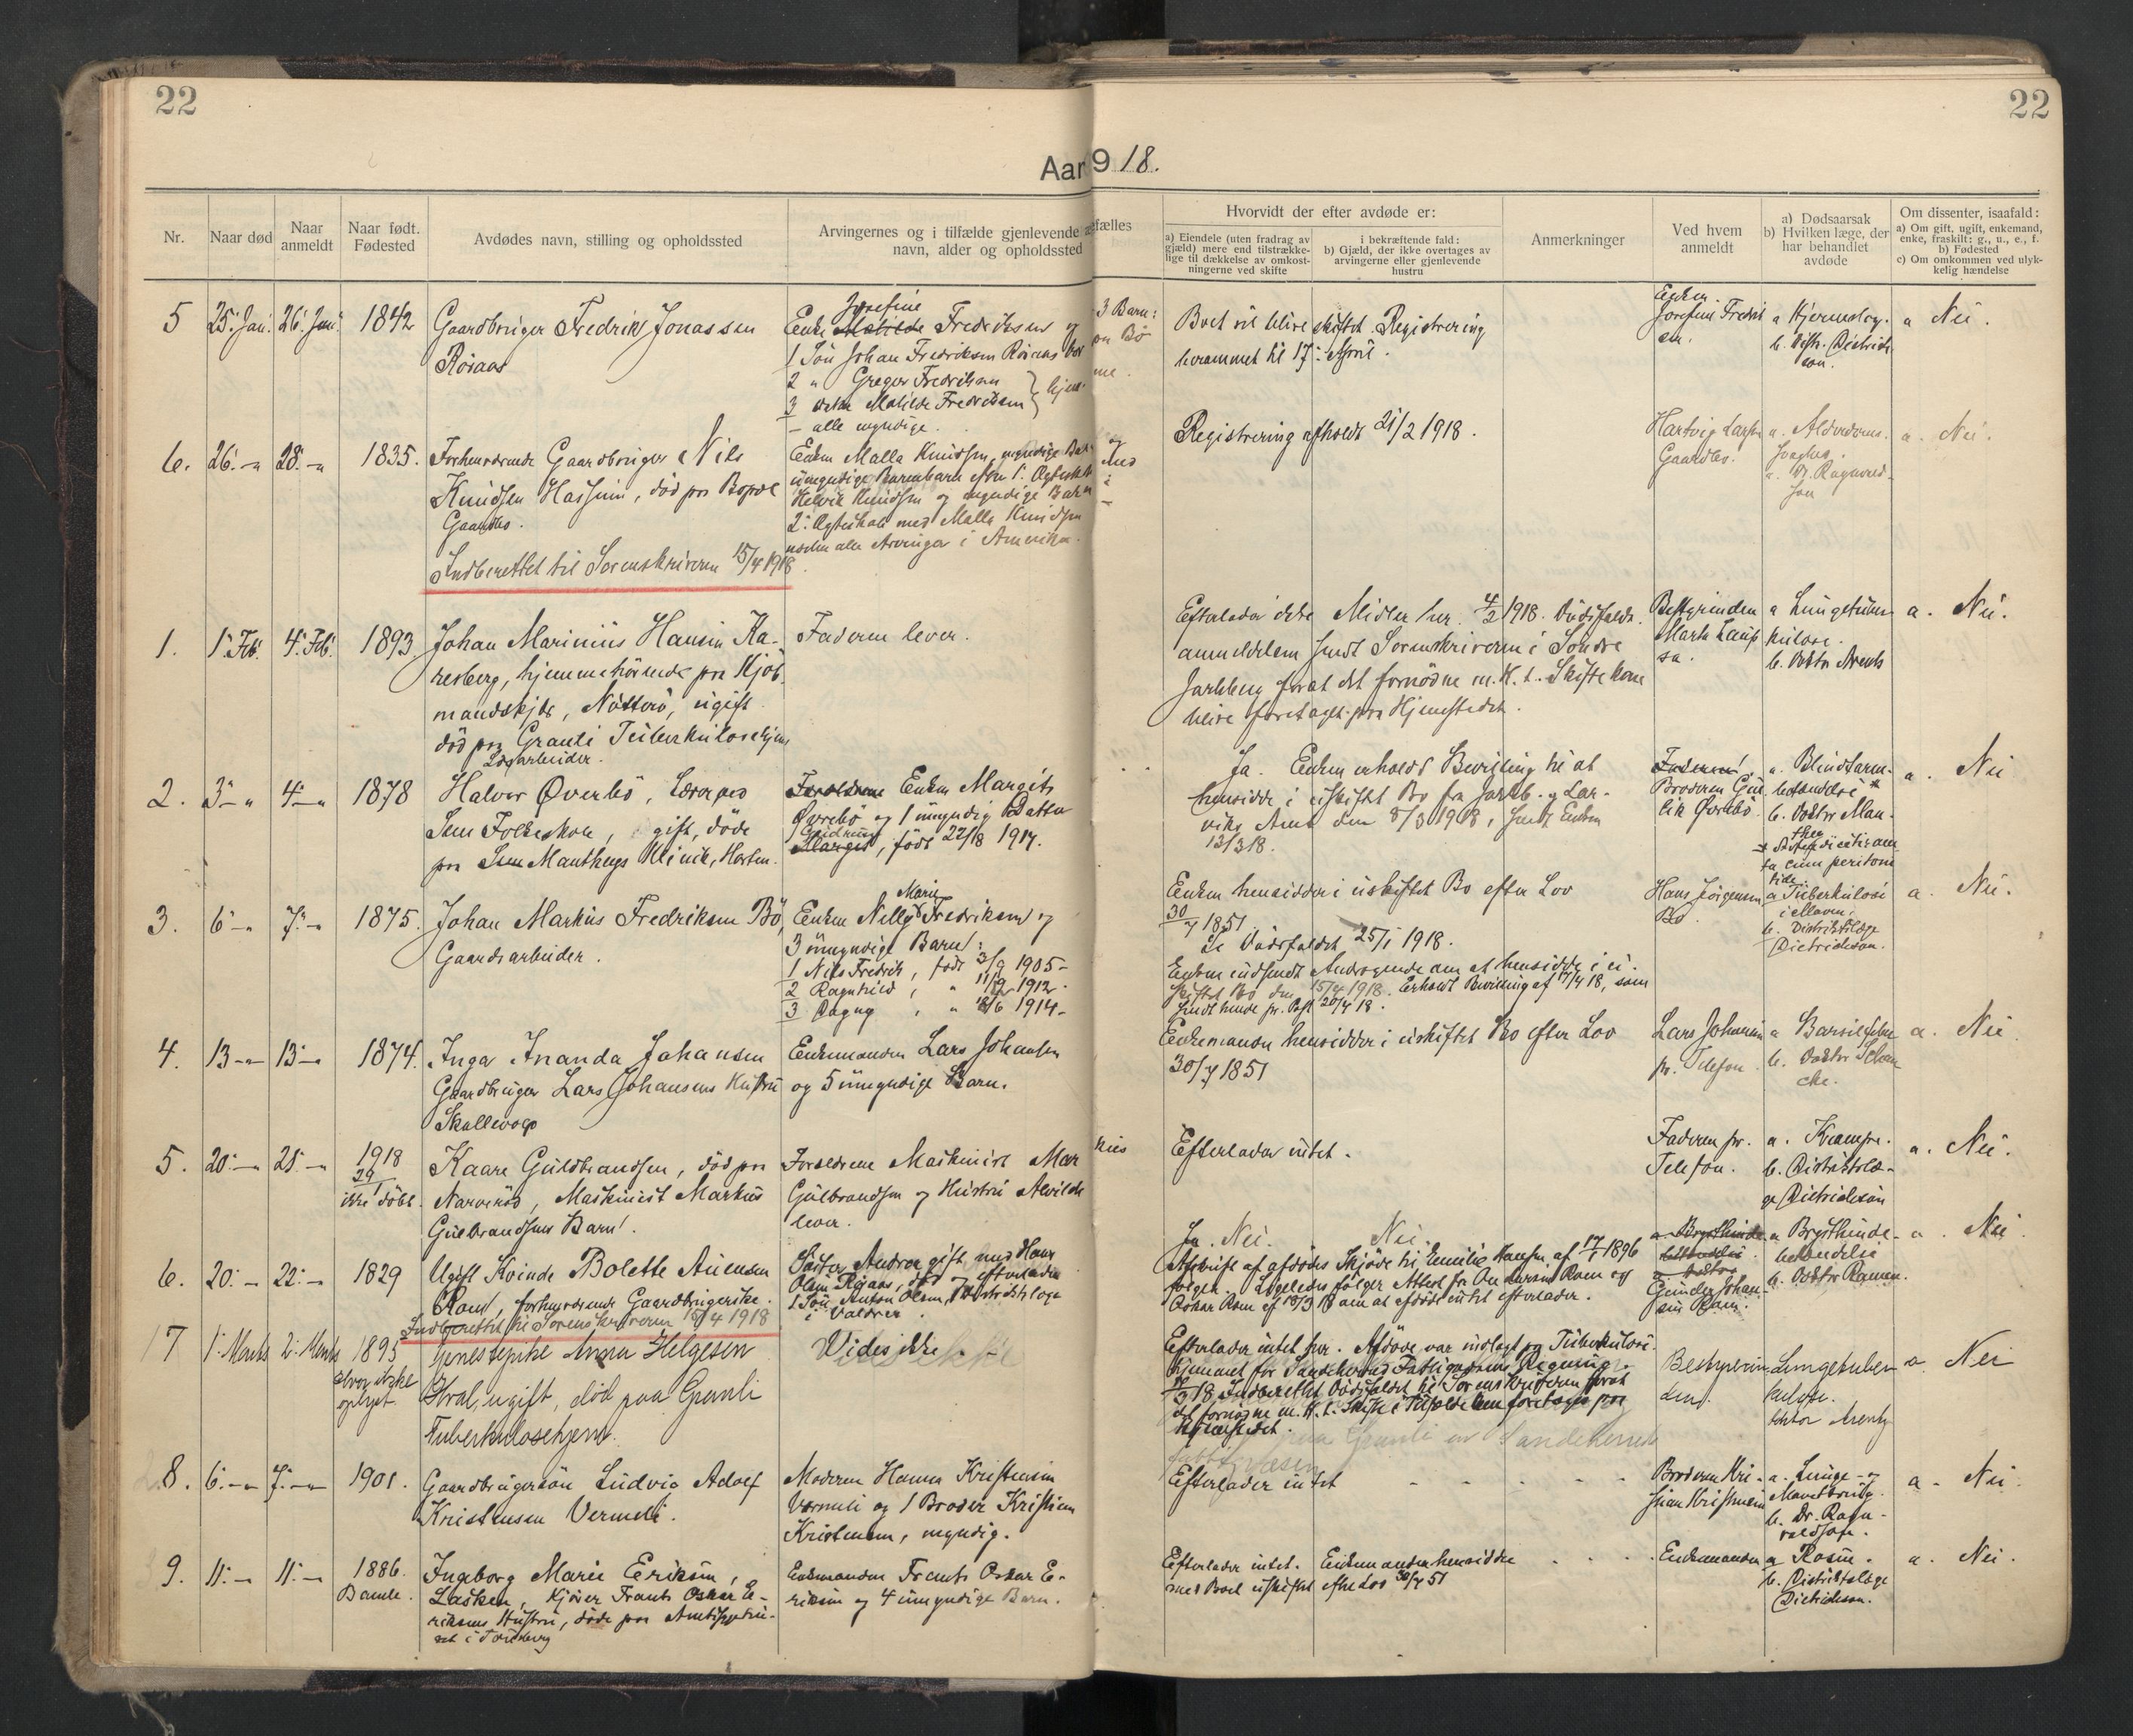 22
22
Aar 1918.
Nr.
Naar død
Naar anmeldt
Naar født. Fødested
Avdødes navn, stilling og opholdssted
Arvingernes og i tilfælde gjenlevende
navn, alder og opholdssted
efælles
Hvorvidt der efter avdøde er:
a) Eiendele (uten fradrag av
gjæld) mere end tilstrække-
lige til dækkelse av omkost-
ningerne ved skifte
i bekræftende fald:
b) Gjæld, der ikke overtages av
arvingerne eller gjenlevende
hustru
Anmerkninger
Ved hvem
anmeldt
a) Dødsaarsak
b) Hvilken læge, der
har behandlet
avdøde
Om dissenter, isaafald:
a) Om gift, ugift, enkemand,
enke, fraskilt: g., u., e., f.
b) Fødested
c) Om omkommen ved ulyk-
kelig hændelse
5 25. Jan. 26. Jan. 1842
Gaardbruger Fredrik Jonassen
Röiaas
Josefine
Enke Matilde Fredriksen og
3 Barn:
1 Sön Johan Fredriksen Röiaas
2 " Greger Fredriksen
3 Datter Matilde Fredriksen
- alle myndige.
Boet vil blive skiftet. Registrering
berammet til 17. April.
Enken
Josefine Fredrik
sen.
a
b. Distr. Dietrich
son.
a Nei.
6. 26. " 28. " 1835.
Forhenværende Gaardbruger Nils
Knudsen Hassum, död paa Bopæl
Gaardbo.
Indberettet til Sorenskriveren 15/4 1918
Enken Malla Knudsen, myndige
umyndige Barnebarn efter 1. Ægteskab
Knudsen og myndige Barn
2. Ægteskab med Malla Knudsen
alle Arvinger i Amerika.
Registrering afholdt 21/2 1918.
Hartvig Larsen
Gaardbo.
a. Alderdoms-
svaghed.
Dr. Ragnvald-
son
a. Nei.
1. 1. Feb. 4. Feb. 1893
Johan Marinius Hansen Ka-
resberg, hjemmehörende paa Kjöb-
mandskjær, Nötterö, ugift
död paa Granli Tuberkulosehjem
Lösarbeider.
Faderen lever.
Efterlader ikke Midler her. 4/2 1918. Dödsfalds-
anmeldelsen sendt Sorenskriveren i Söndre
Jarlsberg forat det fornödne m. H. t. Skifte kan
blive foretaget paa Hjemstedet.
Bestyrinden
Marta Laup
sa.
a Lungetuber
kulose.
b. Doktor Arentz
a. Nei.
2. 3. " 4. " 1878
Halvor Øverbö, Lærer ved
Sem Folkeskole, gift, döde
paa Sem Mantheys Klinik, Horten.
Forældrene Enken Margit
Øvrebö og 1 umyndig Datter
Gudrun
Margit, född 22/8 1917.
Ja. Enken erholdt Bevilling til at
hensidde i uskiftet Bo fra Jarlsb. og Lar-
viks Amt den 8/3 1918, sendt Enken
13/3 18.
Faderen
Broderen Gun
lik Øvrebö
a. Blindtarm-
betændelse *
b. Doktor Man-
they
cum peritoni
tide.
a. Nei
3. 6. " 7. " 1875.
Johan Markus Fredriksen Bö,
Gaardsarbeider.
Marie
Enken Nelly Fredriksen og
3 umyndige Barn:
1 Nils Fredrik, född 3/9 1905 -
2 Ragnhild, " 11/12 1912.
3 Dagny, " 18/6 1914 -
Enken hensidder i uskiftet Bo efter Lov
30/7 1851
Se Dödsfaldet 25/1 1918.
Enken indsendt Andragende om at hensidde i u-
skiftet Bo den 15/4 1918. Erholdt Bevilling af 17/4 18, som
sendt hende pr. Post 20/4 18.
Hans Jörgensen
Bö.
a Tuberkulose
i Maven.
b. Distriktslæge
Dietrichson.
a Nei.
4. 13 " 13 " 1874.
Inga Ananda Johansen
Gaardbruger Lars Johansens Hustru
Skallevold
Enkemanden Lars Johansen
og 5 umyndige Barn.
Enkemanden hensidder i uskiftet Bo efter Lov
30/7 1851
Lars Johansen
pr. Telefon.
a Barselfeber
b. Doktor Schan
che.
a. Nei
5. 20. " 21. " 1918
ikke döbt.
Kaare Guldbrandsen, död paa
Narveröd, Maskinist Markus
Gulbrandsens Barn.
Forældrene Maskinist Markus
Gulbrandsen og Hustru Alvilde
lever.
Efterlader intet.
Faderen pr.
Telefon.
a. Krampe.
b. Distriktslæ-
ge Dietrichson
a. Nei.
6. 20. " 22. " 1829
Ugift Kvinde Bolette Auensen
Ram, forhenværende Gaardbrugerske.
Indberettet til Sorenskriveren 15/4 1918
Söster Andrea gift med Hans
Olsen Röiaas, död og efterlader
1 Sön Anton Olsen, Distriktslæge
i Valdres.
Ja. Nei. Nei
Afskrift af afdödes Skjöde til Emilie Hansen af 17/1 1896
fölger. Ligeledes fölger Attest fra Ram og
Oskar Ram af 18/3 18 om at afdöde intet efterlader.
Gunder Johan-
sen Ram.
a Brysthinde-
betændelse
b. Doktor Ramm.
a. Nei
7 1. Marts 2. Marts 1895
ikke
oplyst
Tjenestepike Anna Helgesen
Hval, ugift, død paa Granli
Tuberkulosehjem.
Vides ikke. -
Efterlader intet her. Afdöde var indlagt paa Tuberkulose-
hjemmet for Sandeherreds Fattigvæsens Regning.
Indberettet Dödsfaldet til Sorenskriveren forat
det fornödne m. H. t. Skifte i Tilfælde kan foretages paa
Hjemstedet.
Bestyrerin
den.
Lungetuber
kulose.
Doktor Arentz
a. Nei
8. 6. " 7. " 1901.
Gaardbrugersön Ludvig Adolf
Kristensen Vermeli.
Moderen Hanna Kristensen
Vermeli og 1 Broder Kristian
Kristensen, myndig.
Efterlader intet - - - - -
Broderen Kri-
stian Kristensen
a. Lunge- og
b. Dr. Ragn-
valdson.
a - Nei.
9. 11. " 11. " 1886.
Bamle.
Ingeborg Marie Eriksen,
Lasken, Kjörer Frants Oskar E-
riksens Hustru, döde paa Amtssygehu-
set i Tönsberg
Enkemanden Frants Oskar E-
riksen og 4 umyndige Barn.
Efterlader intet. Enkemanden hensidder
med Boet uskiftet efter Lov 30/7 51
Enkemanden
a Rosen.
b. Distriktslæge
Dietrichson.
a. Nei.